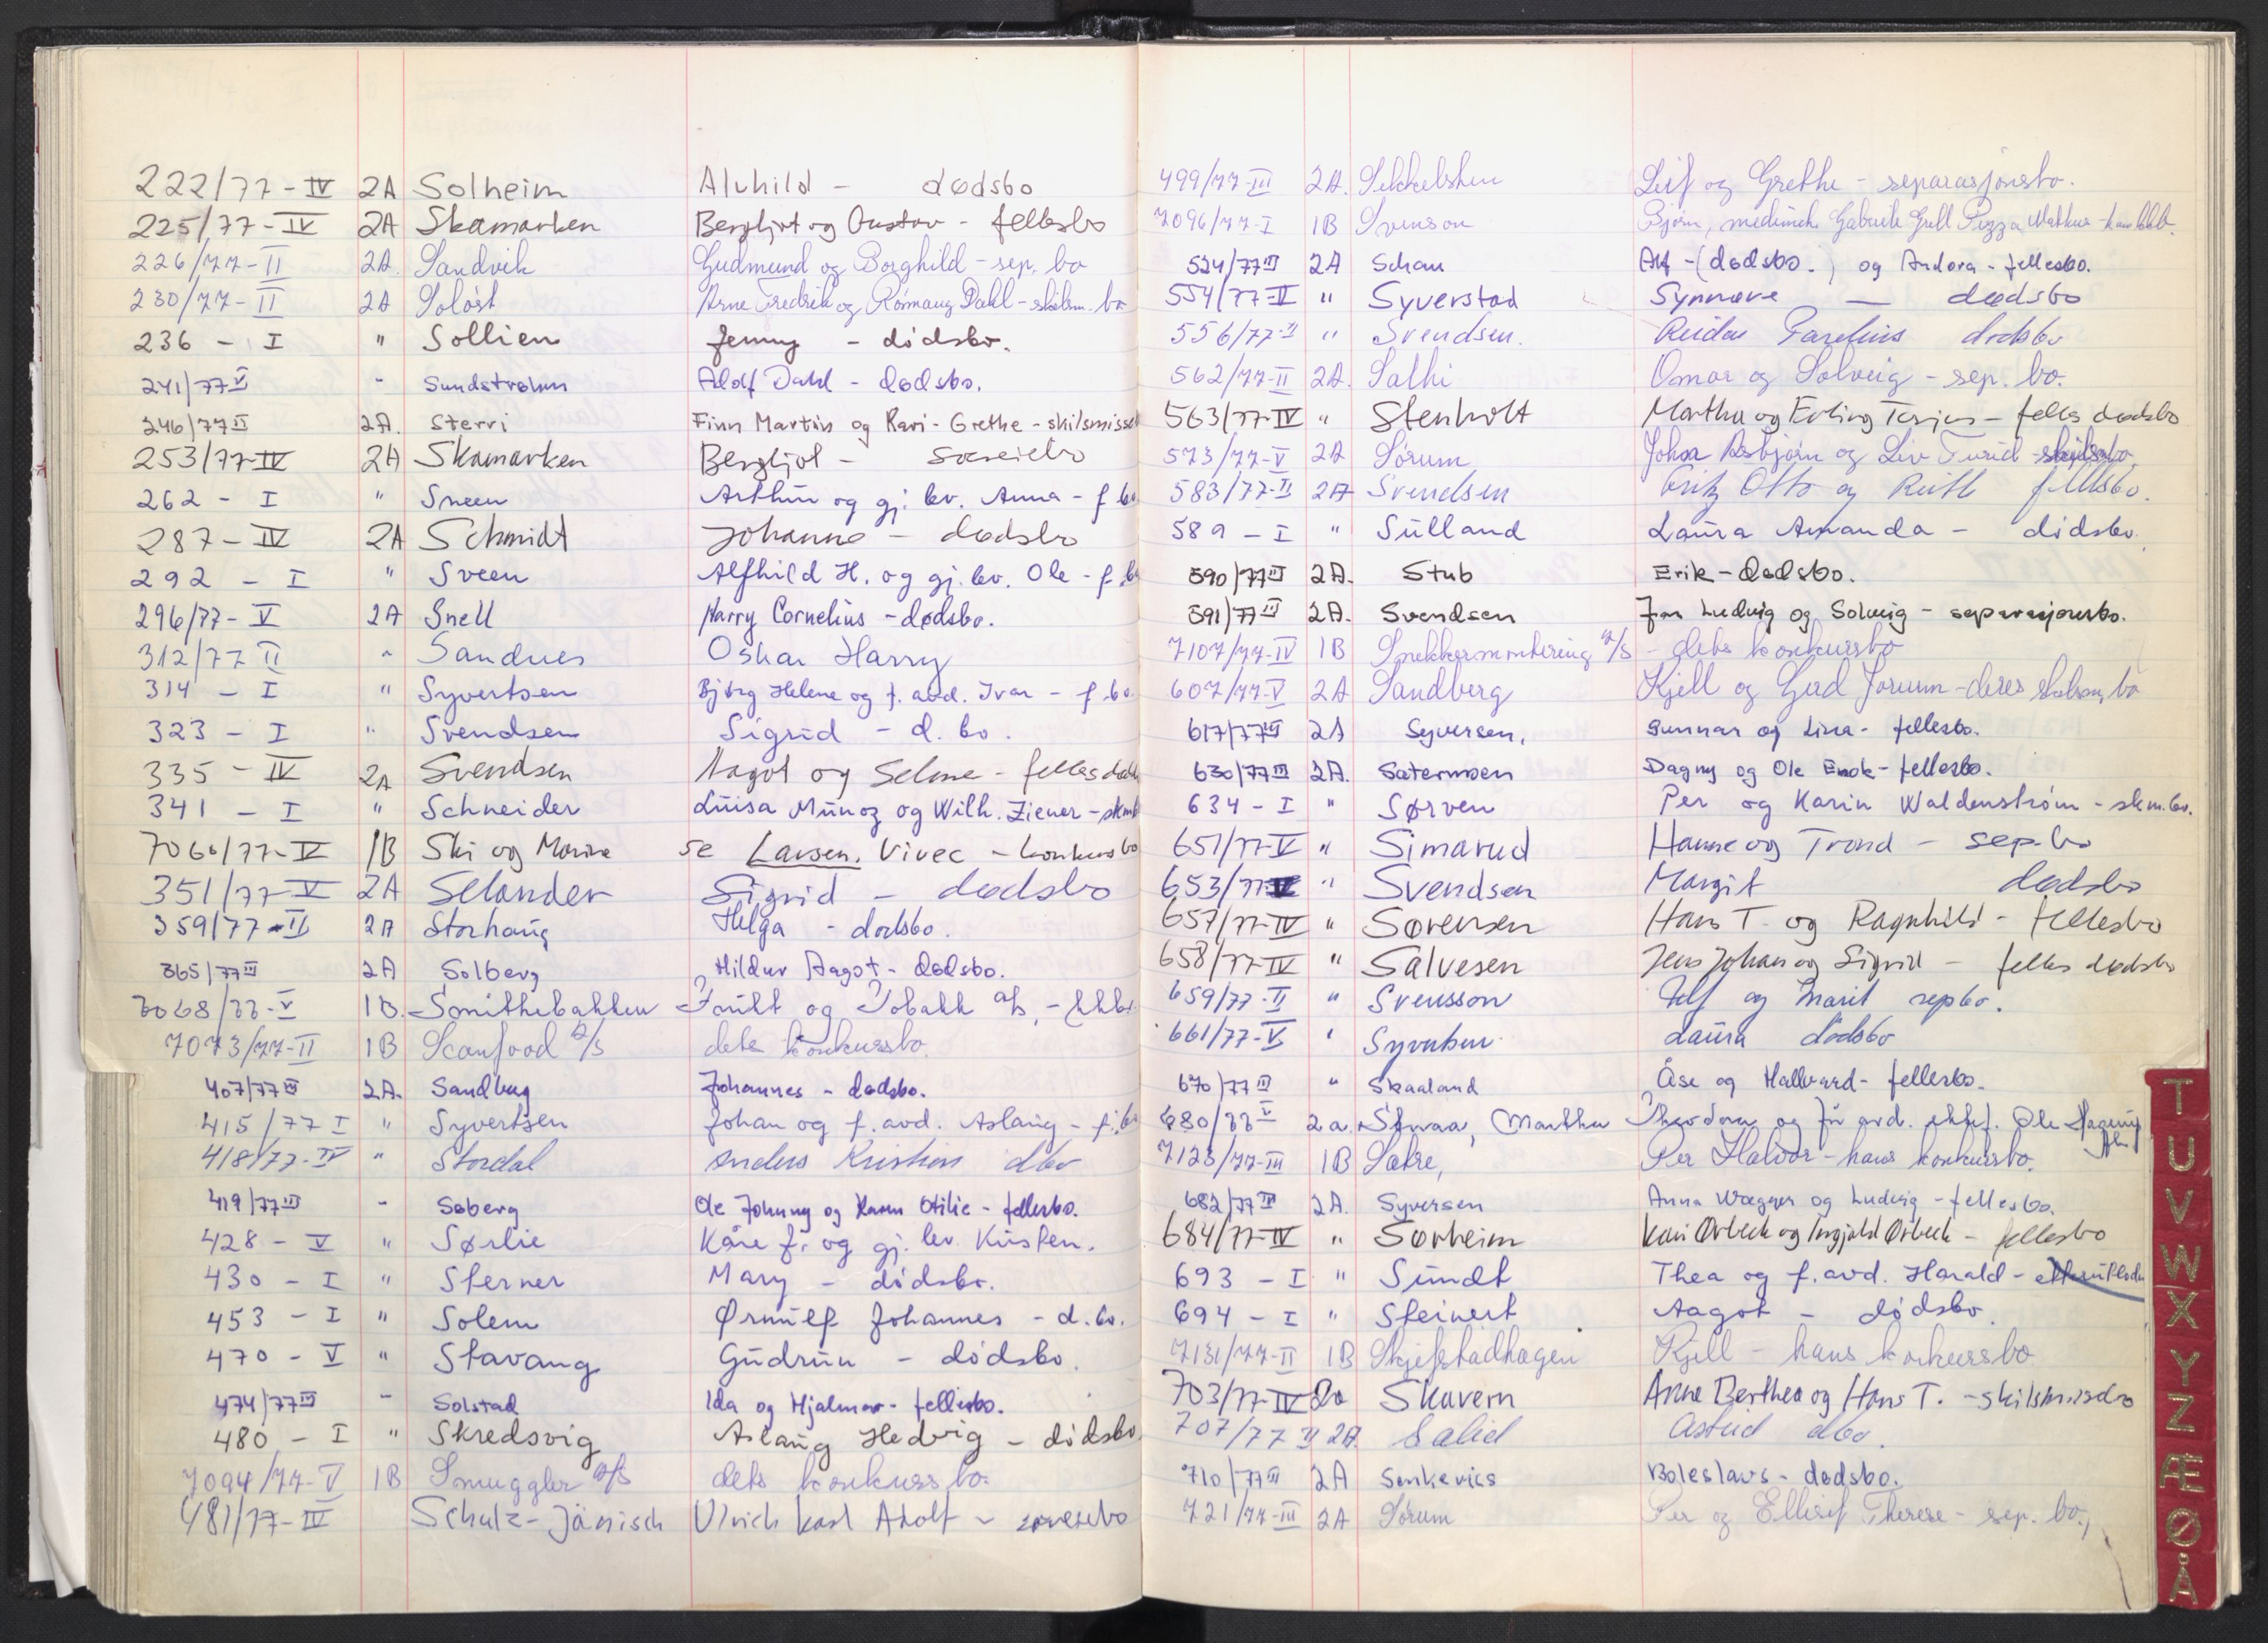 222/77-IV 2A Solheim Alvhild - dødsbo
225/77-IV 2A Skamarken Bergljot og Gustav - fellesbo
226/77-II 2A. Sandvik Gudmund og Borghild - sep. bo
230/77-II 2A Soløst Arne Fredrik og Dahl - skilsm. bo
236 - I " Sollien Jenny - dødsbo.
241/77 V - Sundstrøhm Adolf Dahl - dødsbo.
246/77 II 2A. Sterri Finn Martin og Kari-Grethe - skilsmisse
253/77-IV 2A Skamarken Bergljot - særeiebo
262 - I " Sneen Arthur og gj. lev. Anna - f. bo
287 - IV 2A Schmidt Johanne - dødsbo
292 - I " Sveen Alfhild H. og gj. lev. Ole - f. bo
296/77- V 2A Snell Harry Cornelius - dødsbo.
312/77 II " Sandnes Oskar Harry
314 - I " Syvertsen Bjørg Helene og f. avd. Ivar - f. bo.
323 - I " Svendsen Sigrid - d. bo.
335 - IV 2A Svendsen Aagot og Selma - felles
341 - I " Schneider Luisa Munoz og Wilh. Ziener -
7060/77-IV 1B Ski og Marine se Larsen, Vivec - konkursbo
351/77-V 2A Selander Sigrid - dødsbo
359/77-II 2A Storhaug Helga - dødsbo.
365/77 III 2A Solberg Hildur Aagot - dødsbo.
7068/77-V 1B. Smithebakken Frukt og Tobakk A/S. -
7073/77-II 1B Scanfood A/S dets konkursbo.
407/77 III 2A. Sandberg Johannes - dødsbo.
415/77 I " Syvertsen Johan og f. avd. Aslaug - f. bo
418/77-IV " Stordal Anders Kristian dbo
419/77 III - Søberg Ole Johnny og Karen Otilie - fellesbo.
428 - V " Sørlie Kåre f. og gj. lev. Kirsten.
430 - I " Sterner Mary - dødsbo.
453 - I " Solem Ørnulf Johannes - d. bo.
470 - V " Stavang Gudrun - dødsbo.
474/77 III - Solstad Ida og Hjalmar - fellesbo.
480 - I " Skredsvig Aslaug Hedvig - dødsbo
7094/77-V 1B Smuggler A/S dets konkursbo.
481/77-IV Schulz-Jänisch Ulrich Karl Adolf -
499/77-III 2A. Sikkelsten Leif og Grethe - separasjonsbo.
7096/77-I 1B Svenson Bjørn, medinnh. Gabriels Grill Pizza
524/77 III 2A Schau Alf - (dødsbo.) og Andora - fellesbo.
554/77-IV " Syverstad Synnøve - dødsbo
556/77-II " Svendsen. Reidar Parelius dødsbo
562/77-II 2A. Salhi Omar og Solveig - sep. bo.
563/77-IV " Stenholt Martha og Erling Terjes - felles dødsbo
573/77-V 2A Sørum Johan Asbjørn og Liv Turid
583/77-II 2A Svendsen Fritz Otto og Ruth fellesbo.
589 - I " Sulland Laura Amanda - dødsbo.
590/77 III 2A. Stub Erik - dødsbo.
591/77 III 2A. Svendsen Jan Ludvig og Solveig - separasjonsbo.
7107/77-IV 1B Snekkermontering A/S - dets konkursbo
607/77-V 2A Sandberg Kjell og Gerd Jorunn - deres skilsm. bo
617/77 III 2A Syversen, Gunnar og Lina - fellesbo.
630/77 III 2A. Sætermoen Dagny og Ole Enok - fellesbo.
634 - I " Sørven Per og Karin Waldenstrøm - skm. bo.
651/77-V " Simarud Hanne og Trond - sep. bo
653/77-V " Svendsen Margit dødsbo
657/77-IV " Sørensen Hans T. og Ragnhild - fellesbo
658/77-IV " Salvesen Jens Johan og Sigrid - felles dødsbo
659/77-II " Svensson Ulf og Marit sepbo.
661/77-V " Syvertsen Laura dødsbo
670/77 III " Skaaland Åse og Hallvard - fellesbo.
680/77 V 2a. Straa, Martha Theodora og før avd. ektef. Ole
7123/77-III 1B Sætre, Per Halvor - hans konkursbo.
682/77 III 2A. Syversen Anna Wægger og Ludvig - fellesbo.
684/77-IV " Sørheim Kari Ørbeck og Ingjald Ørbeck - fellesbo
693 - I " Sundt Thea og f. avd. Harald -
694 - I " Steinert Aagot - dødsbo.
7131/77-II 1B Skjefstadhagen Kjell - hans konkursbo
703/77-IV 2a Skavern Anne Berthea og Hans T. - skilsmissebo
707/77 II 2A. Salid Astrid dbo.
710/77 III 2A Senkevics Boleslavs - dødsbo.
721/77-III 2A Sørum Per og Ellisif Therese - sep. bo.
T
U
V
W
X
Y
Z
Æ
Ø
Å